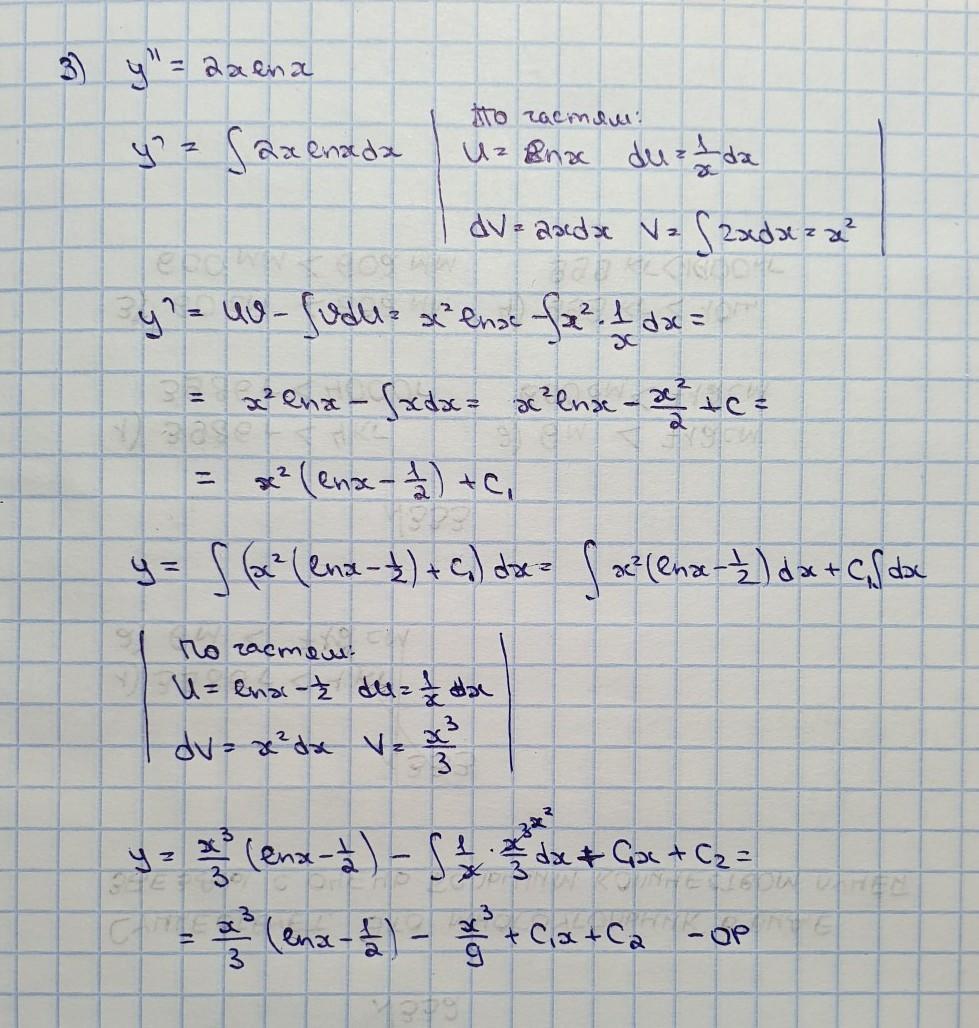 3) y'' = 2x ln x
y' = ∫ 2x ln x dx | По частям:
U = ln x du = 1/x dx
dV = 2x dx V = ∫ 2x dx = x² |
y' = uv - ∫ v du = x² ln x - ∫ x² · 1/x dx =
= x² ln x - ∫ x dx = x² ln x - x²/2 + C =
= x² (ln x - 1/2) + C₁
y = ∫ (x² (ln x - 1/2) + C₁) dx = ∫ x² (ln x - 1/2) dx + C₁ ∫ dx
| По частям:
U = ln x - 1/2 du = 1/x dx
dV = x² dx V = x³/3 |
y = x³/3 (ln x - 1/2) - ∫ 1/x · x³/3 dx + C₁x + C₂ =
= x³/3 (ln x - 1/2) - x³/9 + C₁x + C₂ - ОР